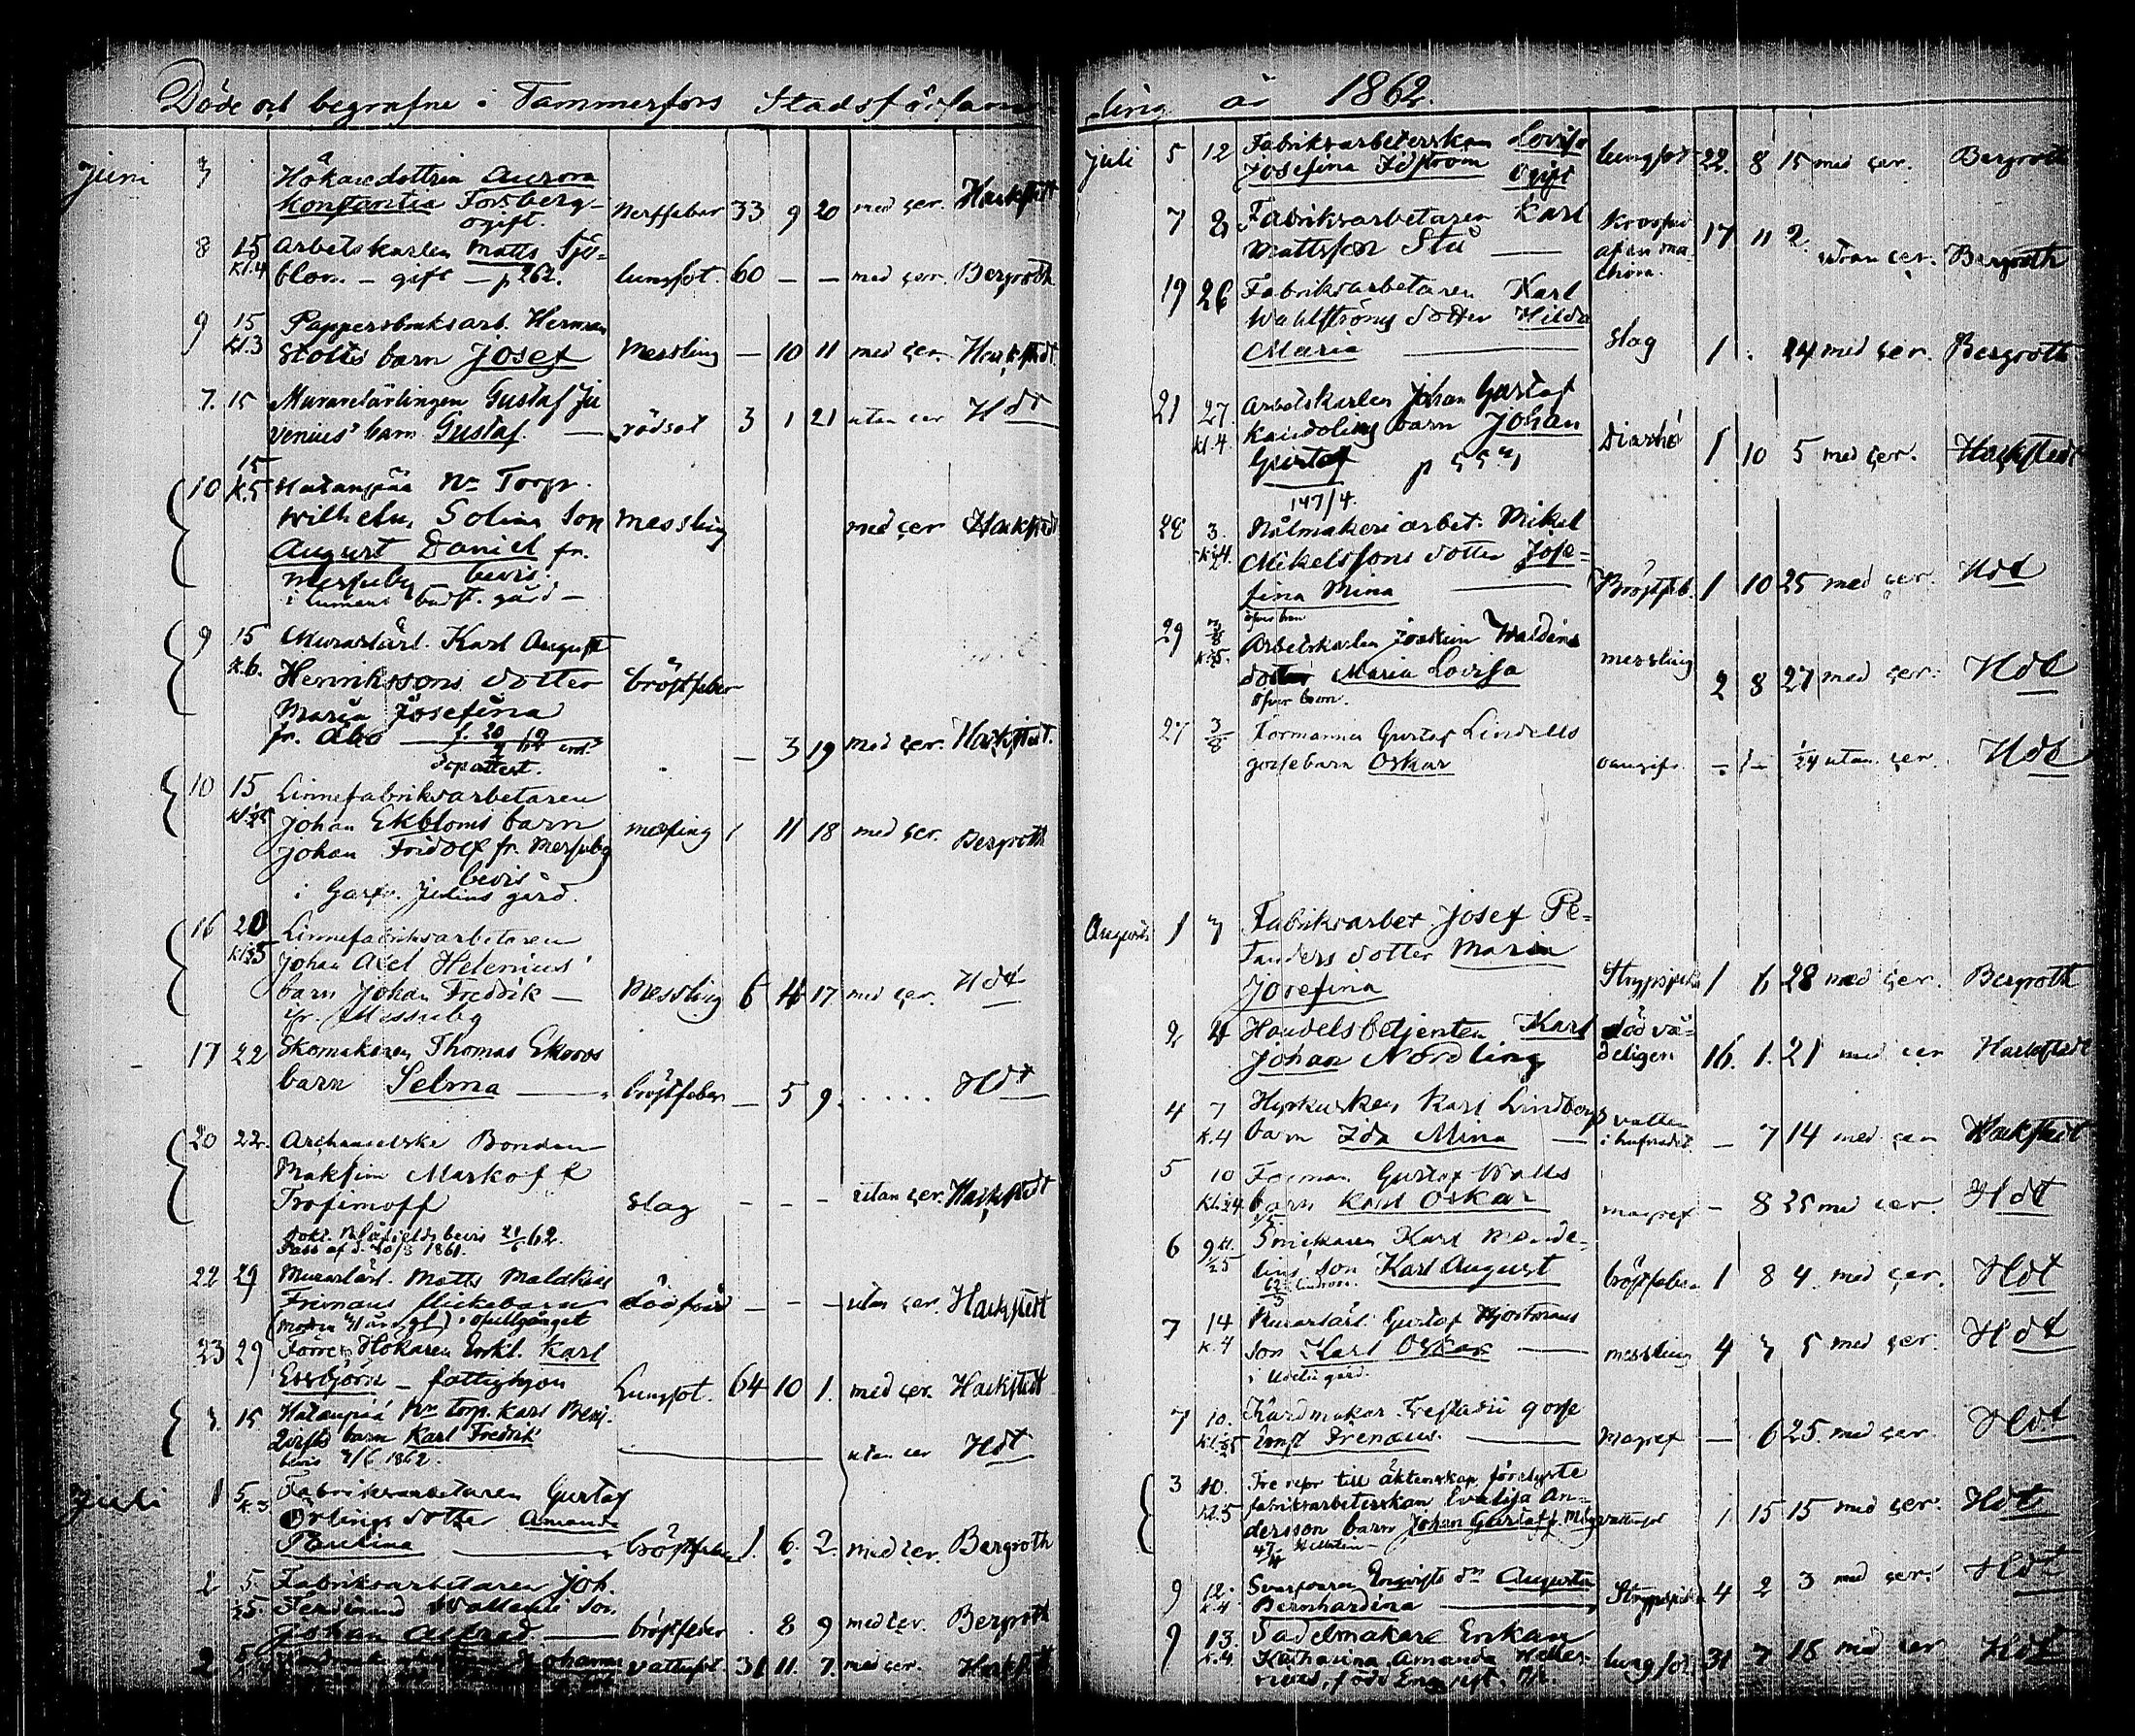 Döde och begrafne i Tammerfors Stadsförsam
Juni 3 Hökaredottren Aurora
Konstantia Forsberg
ogift. Nerffeber 33 9 20 med cer. Hackstedt
8 15 Arbetskarlen Matts Sjö-
kl.4 blom. – gift – p 262. lungsot. 60 – – med cer. Bergroth
9 15 Pappersbruksarb. Herman
kl.3 Stolts barn Josef Messling – 10 11 med cer. Hackstedt.
7. 15 Murarelärlingen Gustaf Ju
venius' barn Gustaf. — rödsot 3 1 21 utan cer Hdt
15
10 K.5 Hatanpää Torp.
Wilhelm Solins Son messling med cer Hackstedt
August Daniel fr.
Messuby bevis.
i gård –
9 15 Murarlärl. Karl August
K.6. Henrikssons dotter bröstfeber
Maria Josefina
fr. Åbo — 3 19 med cer. Hackstedt.
dopattest.
10 15 Linnefabriksarbetaren
Johan Ekbloms barn messling 1 11 18 med cer. Bergroth
Johan Fridolf fr. Messuby
bevis
i Garfv. Julins gård.
16 20 Linnefabriksarbetaren
Johan Axel Helenius'
barn Johan Fredrik — Messling 6 4 17 med cer. Hdt
fr. Messuby
17 22 Skomakaren Thomas Ekroos
barn Selma — bröstfeber – 5 9. ..... Hdt
20 22. Archangelske Bonden
Maksim Markoff
Trofimoff slag – – – utan cer. Hackstedt
bevis 21/6 62.
Pass af d. 20/3 1861.
22 29 Murarlärl. Matts
Frimans flickebarn dödfödd – – – utan cer. Hackstedt
23 29 Förre Hökaren Enkl. Karl
Essbjörn – fattighjon Lungsot. 64 10 1. med cer. Hackstedt
3. 15 Hatanpää Torp. Karl
barn Karl Fredrik — utan cer Hdt
bevis 7/6 1862.
Juli 1 5 Fabriksarbetaren Gustaf
K 3 Örlings dotter Amanda
Paulina — bröstfeber 1. 6. 2. med cer. Bergroth
2 5. Fabriksarbetaren Joh.
Ferdinand Wallenii son
Johan Alfred. — bröstfeber . 8 9 med cer. Bergroth
2 5 Johanna vattusot 31 11. 7. med cer. Hackstedt
ling år 1862.
Juli 5 12 Fabriksarbeterskan Lovisa
Josefina Idström ogift lungsot 22. 8 15 med cer. Bergroth
7 8 Fabriksarbetaren Karl
Mattsson Stå — Krossad af en ma-
china. 17 11 2. utan cer. Bergroth
19 26 Fabriksarbetaren Karl
Wahlströms dotter Hilda
Maria — slag 1 . 24 med cer. Bergroth
21 27. Arbetskarlen Johan Gustaf
Kl.4. barn Johan
Gustaf Diarhé 1 10 5 med cer. Hackstedt
147/4.
28 3. Nålmakeriarbet. Mikel
Mikelssons dotter Jose-
fina Mina — Bröstfeb. 1 10 25 med cer. Hdt
29 3/8 Arbetskarlen Joakim Waldéns
dotter Maria Lovisa messling 2 8 27 med cer. Hdt
27 3/8 Formannen Gustaf Lindells
gossebarn Oskar oangifv. – – 1/24 utan cer. Hdt
Augusti 1 3 Fabriksarbet Josef Pe-
tanders dotter Maria
Josefina Strypsjuka 1 6 28 med cer. Bergroth
2 4 Handelsbetjenten Karl död vå-
Johan Nordling deligen 16. 1. 21 med cer Hackstedt
4 7 Hyrkusken Karl Lindbergs vatten
K.4 barn Ida Mina — i hufvudet. – 7 14 med cer Hackstedt
5 10 Forman Gustaf Walls
barn Karl Oskar magref – 8 25 med cer. Hdt
6 9 Snickaren Karl Mande-
lins son Karl August bröstfeber 1 8 4 med cer. Hdt
7 14 Murarlärl. Gustaf Hjortmans
K.4 son Karl Oskar — messling 4 3 5 med cer. Hdt
i gård.
7 10. Kardmakar Frestadii gosse
Ernst Irenaeus. — Magref – 6 25. med cer. Hdt
3 10. Tre rsr till äktenskap förelyste
Kl.5 fabriksarbeterskan Evalisa An-
dersson barn Johan Gustaf fr. Mby vattusot 1 15 15 med cer. Hdt
9 12. Svarfvaren Engqvists dr Augusta
K.4 Bernhardina — Strypsjuka 4 2 3 med cer. Hdt
9 13. Sadelmakare Enkan
K.4 Katharina Amanda Weller-
född Engqvist. lungsot 31 7 18 med cer Hdt